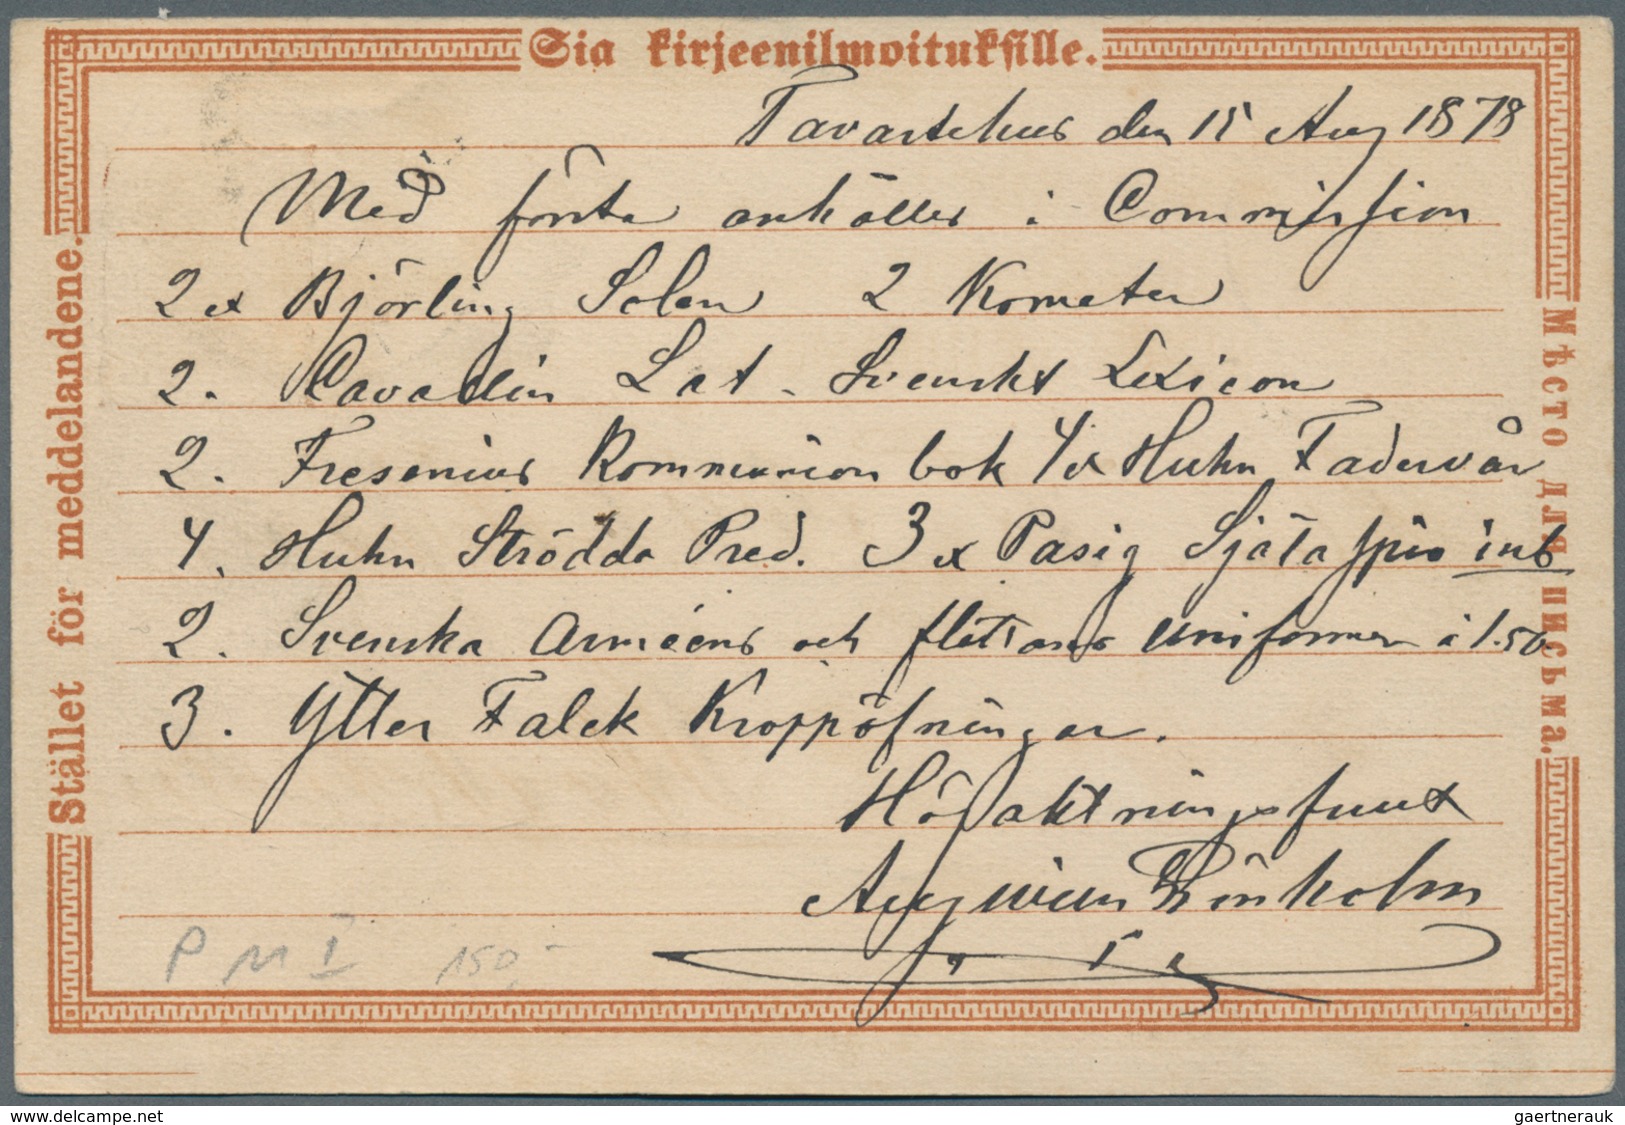 Sia kirjeenilmoituksille.
Stället för meddelandene.
Мѣсто для письма.
Tavastehus den 15 Aug 1878
Med första anhålles i Commission
2 ex Björling Solen 2 Kometer
2. Cavallin Lat - Svenskt Lexicon
2. Fresenius Kommunion bok 4 ex Huhn Fadervår
4. Huhn Strödda Pred. 3 ex Pasig inb
2. Svenska Arméens och flottans uniformer à 1.50
3. Ytter Falck Kroppöfningar.
Högaktningsfullt
Rönholm
P M I 150,-
www.delcampe.net
gaertnerauk